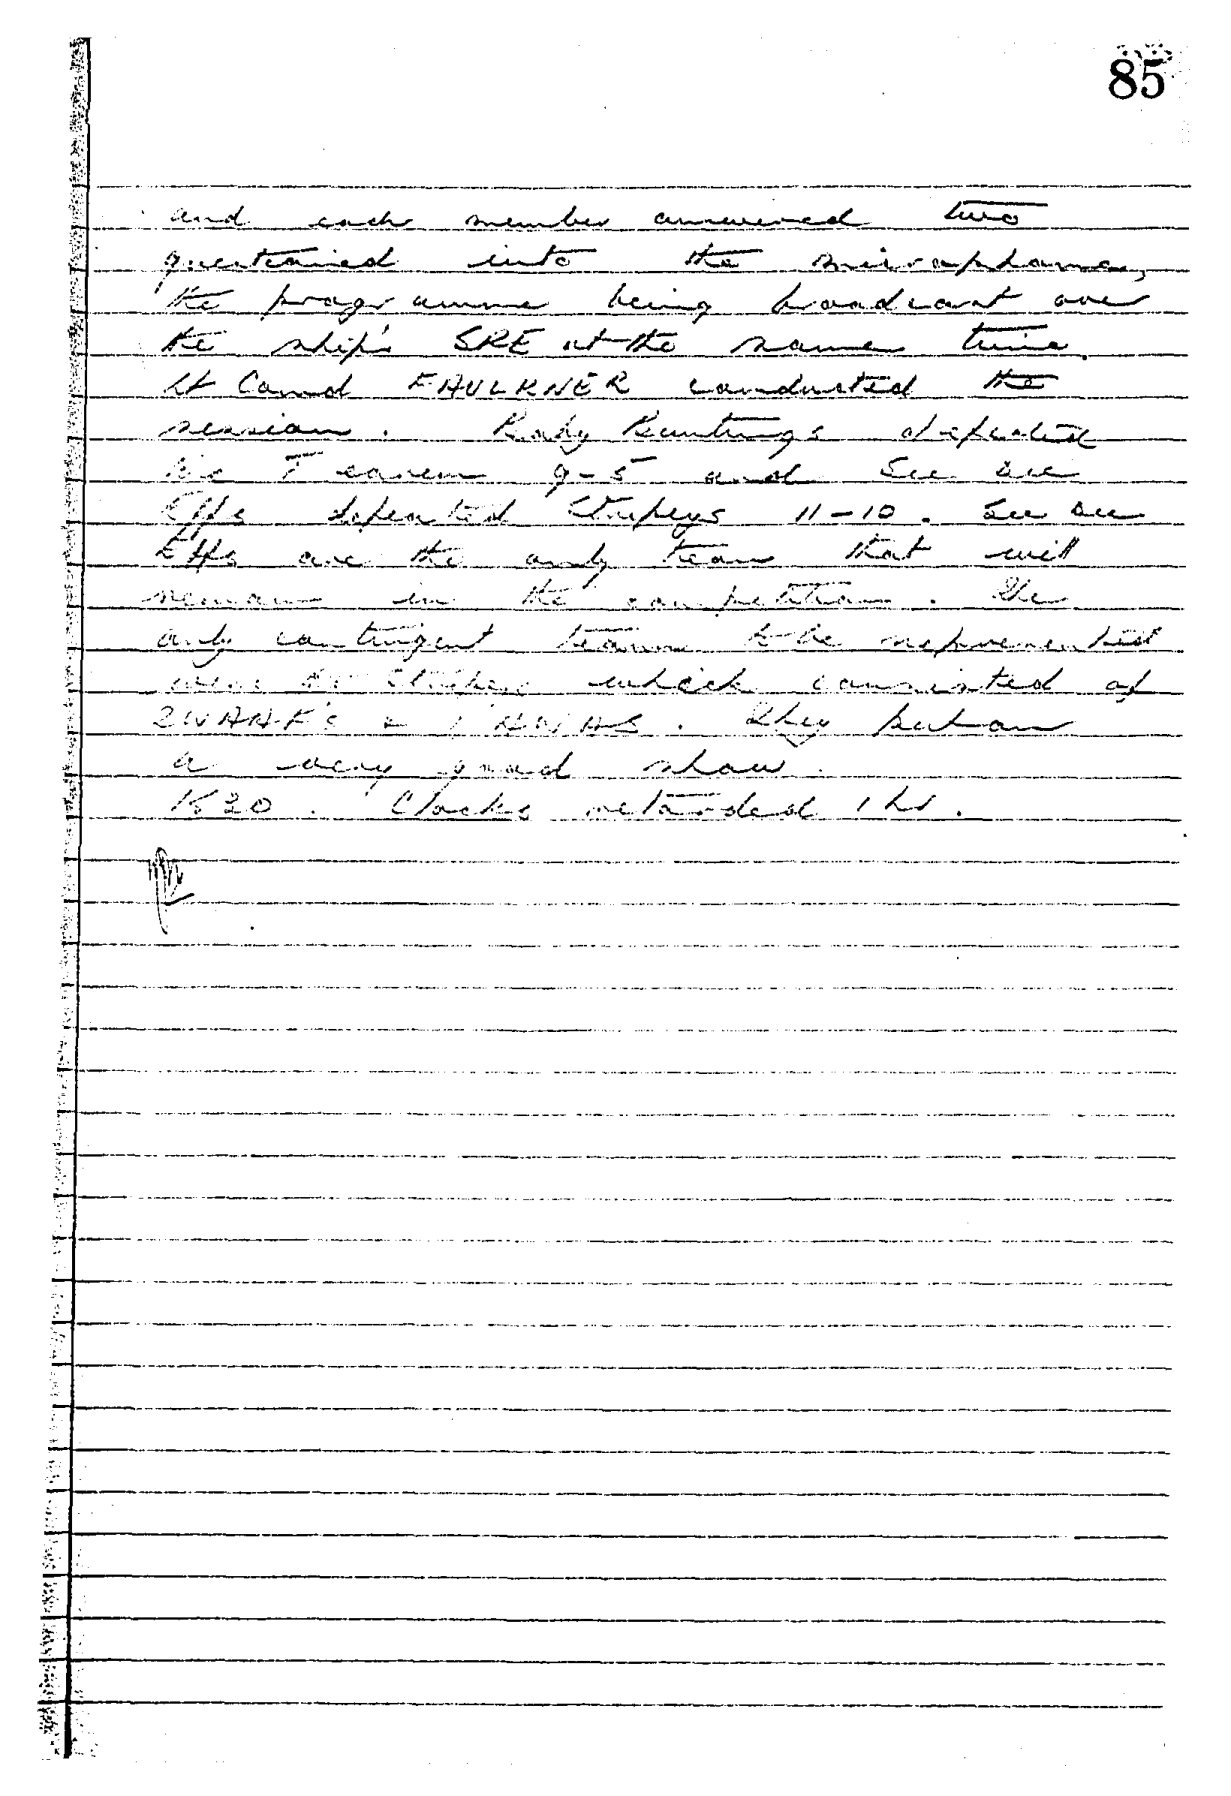 85
and each member answered two
questioned into the microphone,
the programme being broadcast over
the ship's SRE at the same time.
Lt Comd FAULKNER conducted the
session. Baby Buntings defeated
T 9-5 and See Dee
Effs defeated Stripeys 11-10. See Dee
Effs are the only team that will
remain in the competition. The
only contingent team to be represented
were the Stripeys which consisted of
2 WAAAF's & 1 AWAS. They put on
a very good show.
1520. Clocks retarded 1 hr.